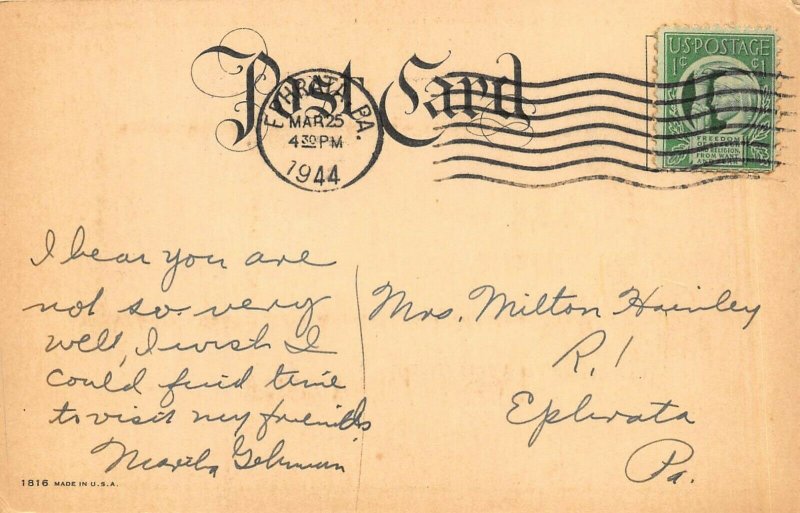 Post Card
EPHRATA, PA.
MAR 25
4 30 PM
1944
U.S. POSTAGE
1¢ ¢1
FREEDOM
OF SPEECH
AND RELIGION,
FROM WANT
I hear you are
not so very
well, I wish I
could find time
to visit my friends
Martha Gehman
Mrs. Milton Hainley
R. 1
Ephrata
Pa.
1816 MADE IN U.S.A.